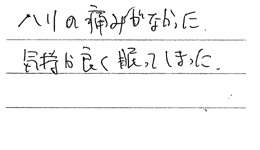 ハリの痛みがなかった.
気持ち良く眠ってしまった.